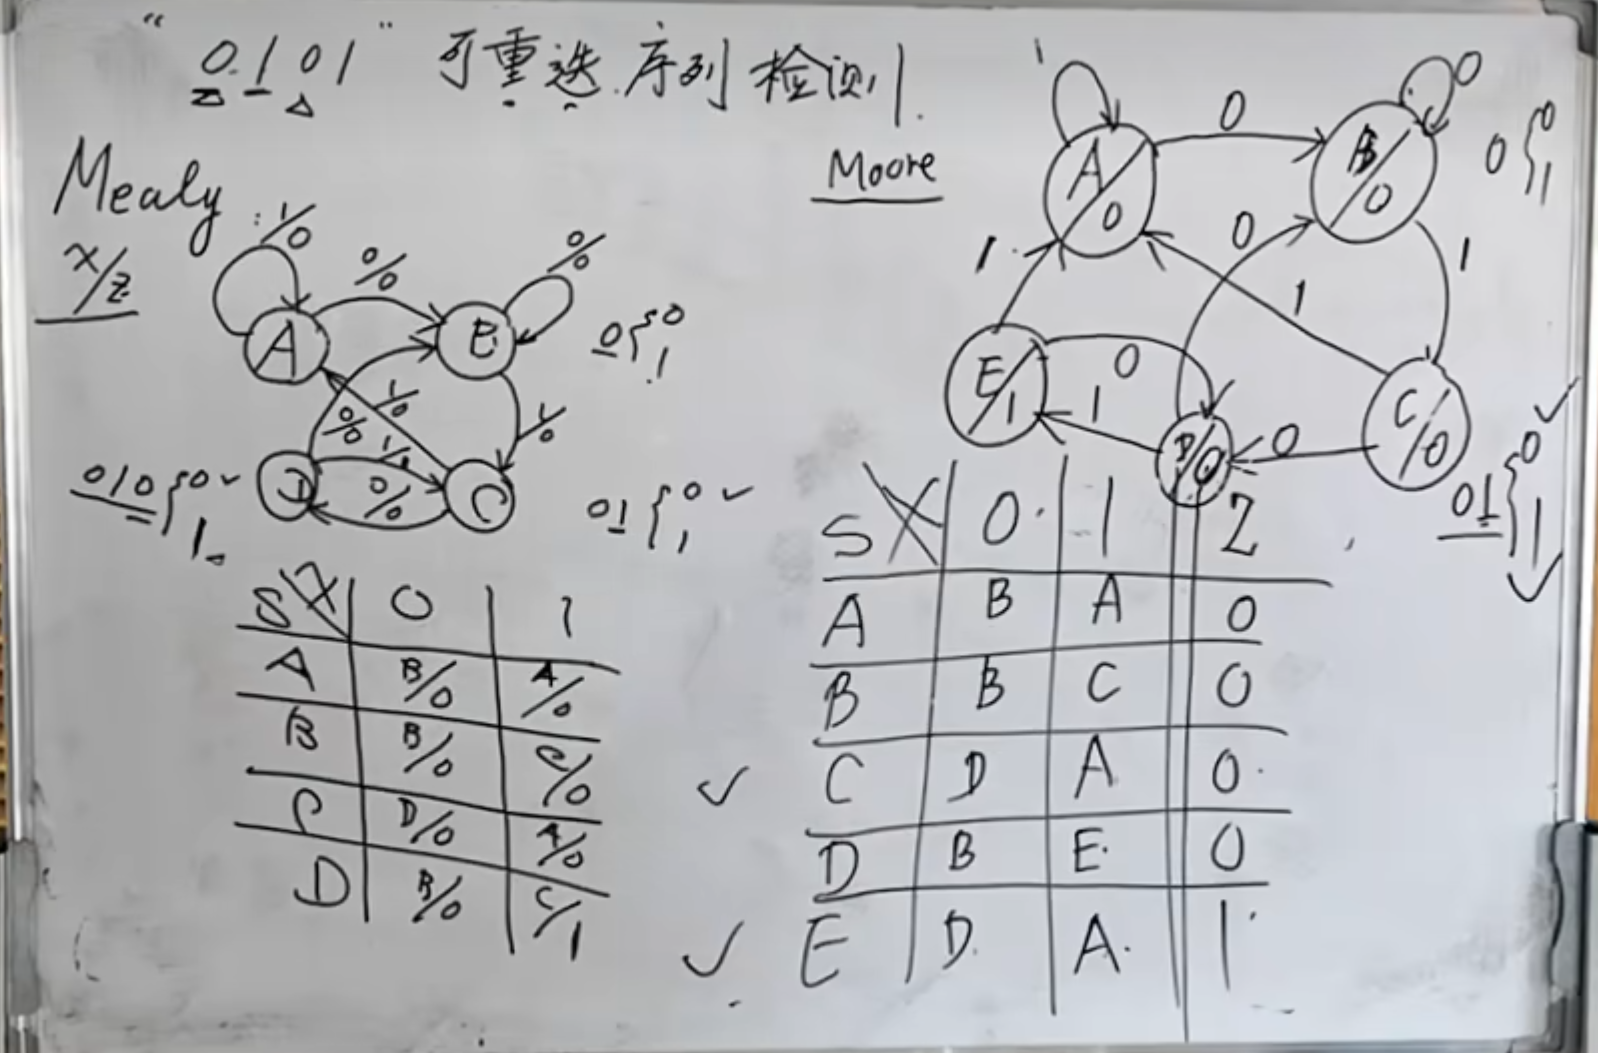 “0101” 可重迭序列检测
Mealy
X/Z
1/0
0/0
0/0
A
B
0{0
1
1/0
1/0
0/0
1/1
0/0
D
C
010{0✓
1
01{0✓
1
S X 0 1
A B/0 A/0
B B/0 C/0
C D/0 A/0
D B/0 C/1
Moore
1
0
0
A/0
B/0
0{0
1
1
0
1
1
E/1
0
1
D/0
0
C/0
01{0✓
1✓
S X 0 1 Z
A B A 0
B B C 0
✓ C D A 0
D B E 0
✓ E D A 1